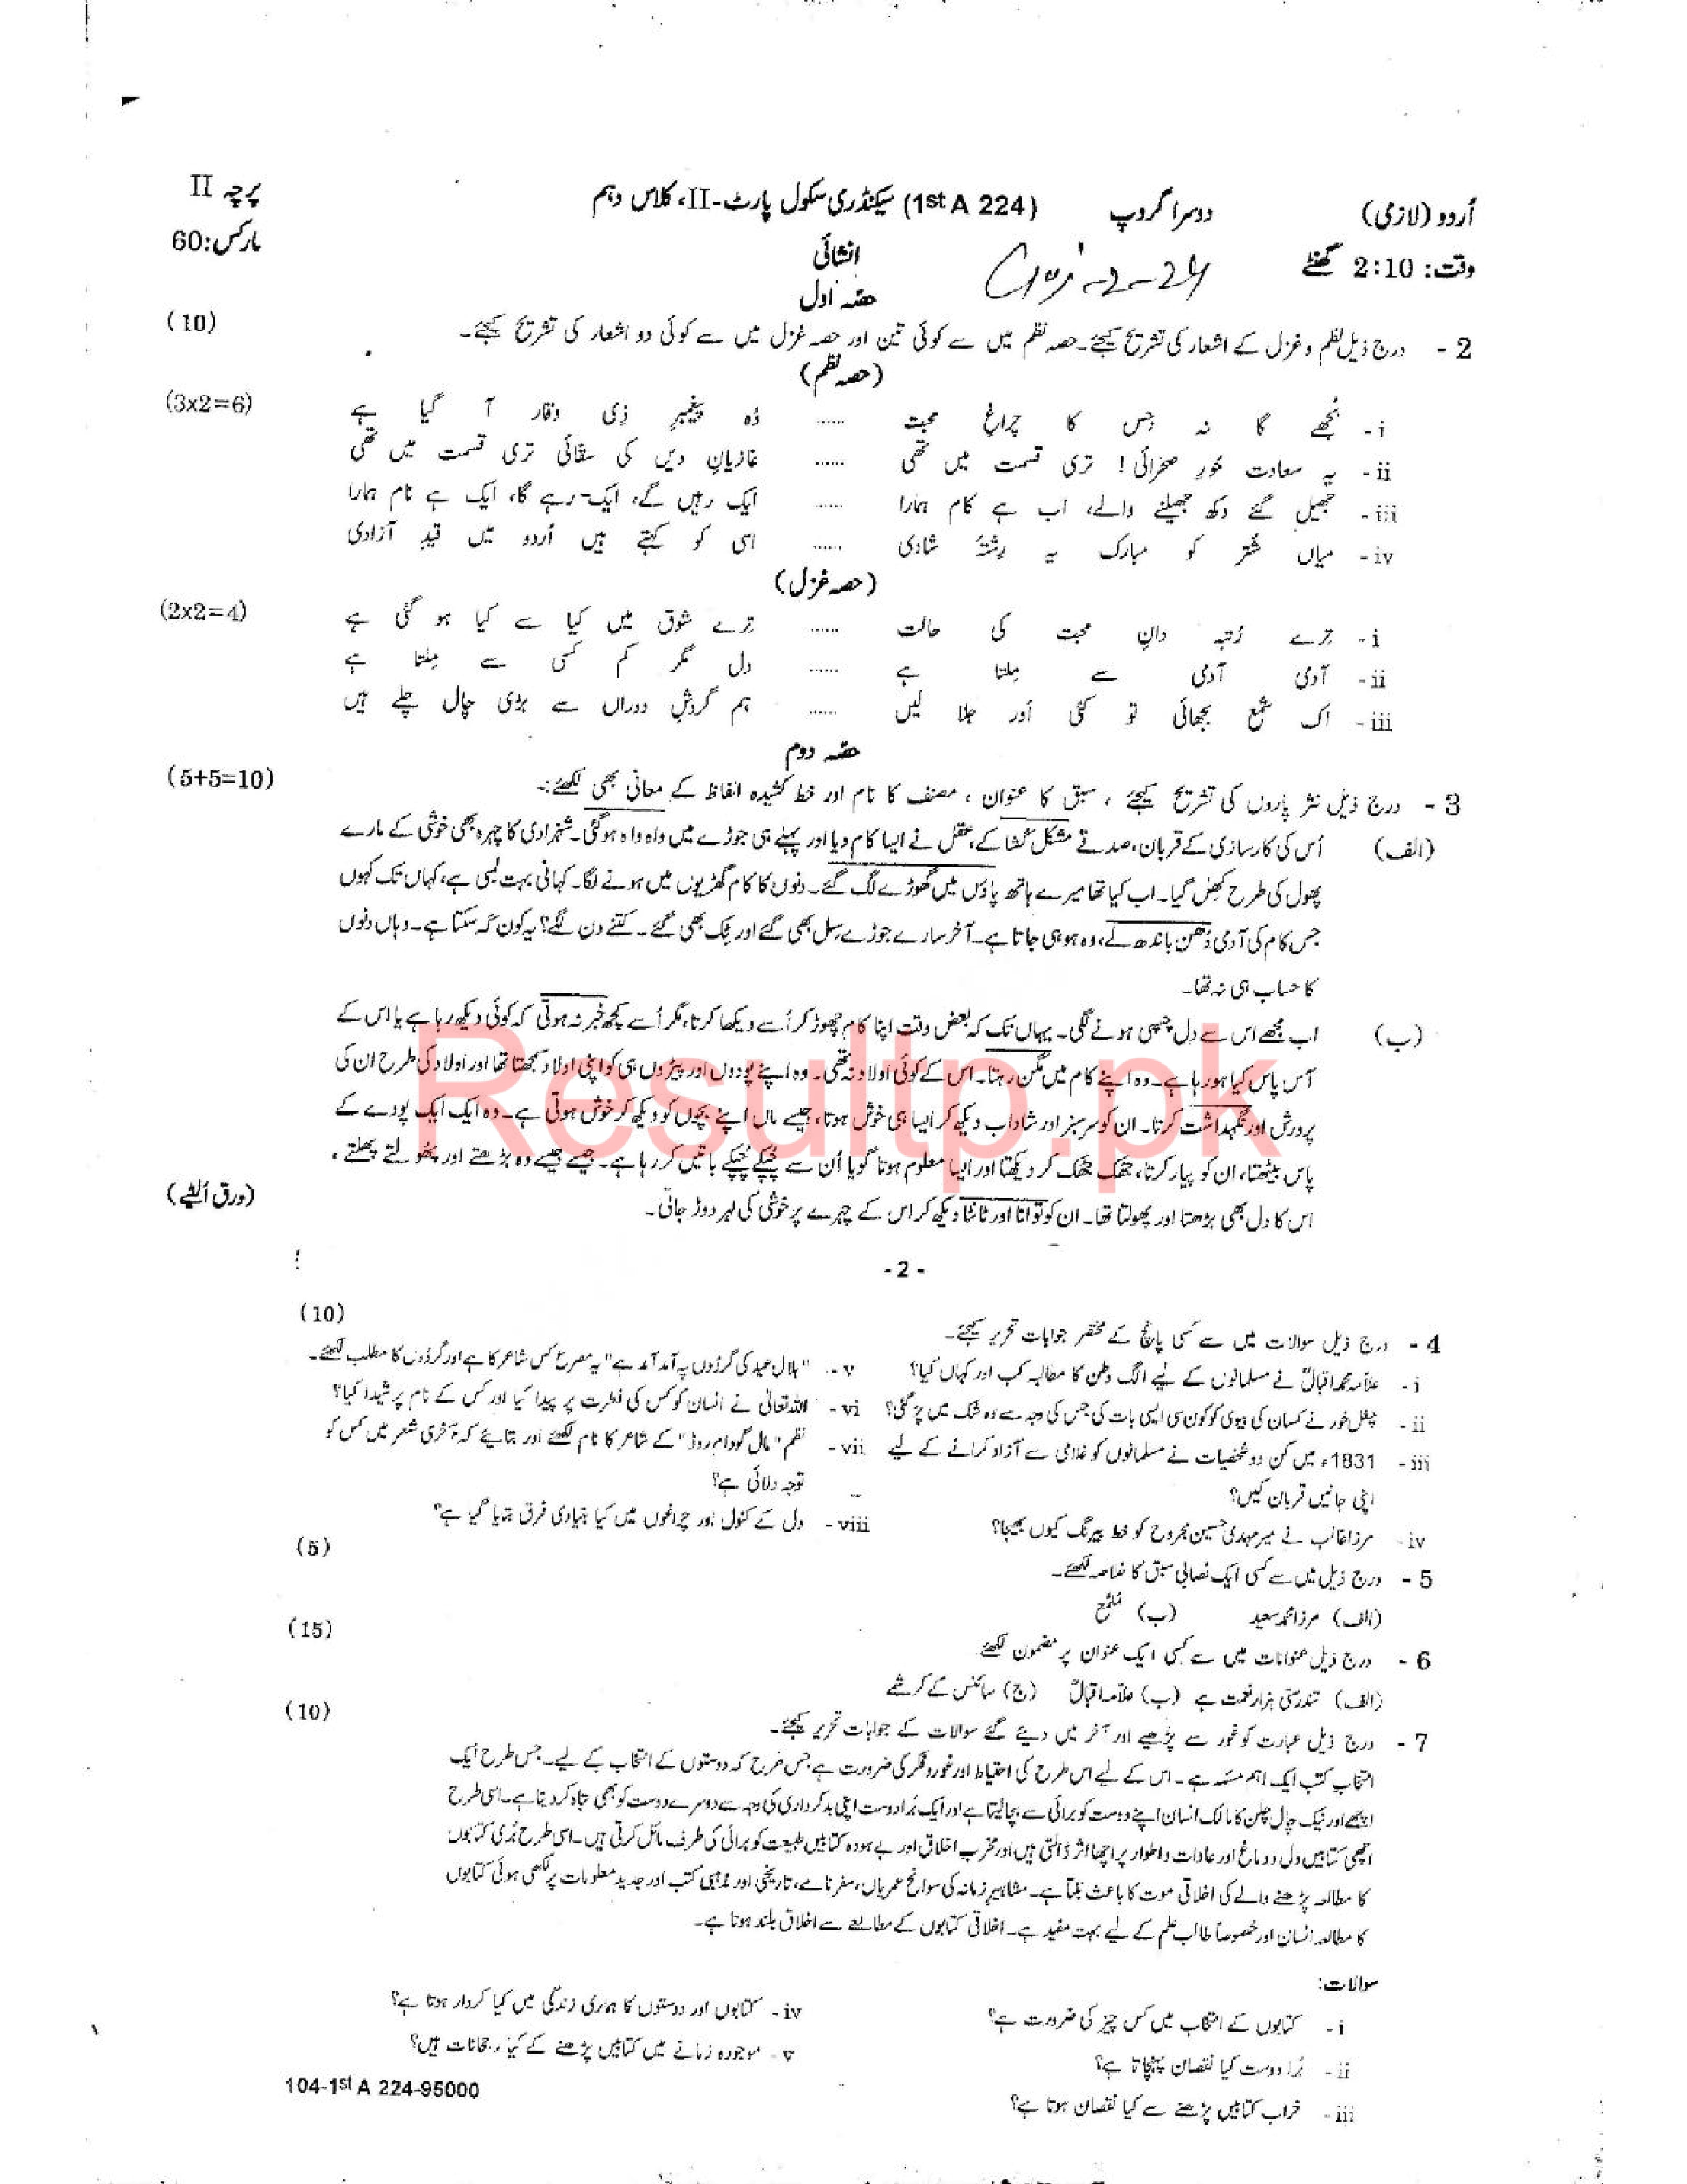 اُردو (لازمی) دوسرا گروپ (1st A 224) سیکنڈری سکول پارٹ-II، کلاس دہم پرچہ II
وقت: 2:10 گھنٹے انشائی مارکس:60
حصّہ اول
2 - درج ذیل نظم و غزل کے اشعار کی تشریح کیجئے۔ حصہ نظم میں سے کوئی تین اور حصہ غزل میں سے کوئی دو اشعار کی تشریح کیجئے۔ (10)
(حصہ نظم)
i - بُجھے گا نہ جس کا چراغِ محبت ...... وُہ پیغمبرِ ذی وقار آ گیا ہے (3x2=6)
ii - یہ سعادت حُورِ صحرائی! تری قسمت میں تھی ...... غازیانِ دیں کی سقّائی تری قسمت میں تھی
iii - جھیل گئے دکھ جھیلنے والے، اب ہے کام ہمارا ...... ایک رہیں گے، ایک رہے گا، ایک ہے نام ہمارا
iv - میاں شُتر کو مبارک یہ رشتۂ شادی ...... اسی کو کہتے ہیں اُردو میں قیدِ آزادی
(حصہ غزل)
i - ترے رُتبہ دانِ محبت کی حالت ...... ترے شوق میں کیا سے کیا ہو گئی ہے (2x2=4)
ii - آدمی آدمی سے مِلتا ہے ...... دل مگر کم کسی سے مِلتا ہے
iii - اک شمع بجھائی تو کئی اور جلا لیں ...... ہم گردشِ دوراں سے بڑی چال چلے ہیں
حصّہ دوم
3 - درج ذیل نثر پاروں کی تشریح کیجئے ، سبق کا عنوان ، مصنف کا نام اور خط کشیدہ الفاظ کے معانی بھی لکھئے:۔ (5+5=10)
(الف) اُس کی کارسازی کے قربان، صدقے مشکل کُشا کے، عقل نے ایسا کام دیا اور پہلے ہی جوڑے میں واہ واہ ہو گئی۔ شہزادی کا چہرہ بھی خوشی کے مارے
پھول کی طرح کھِل گیا۔ اب کیا تھا میرے ہاتھ پاؤں میں گھوڑے لگ گئے۔ دنوں کا کام گھڑیوں میں ہونے لگا۔ کہانی بہت لمبی ہے، کہاں تک کہوں
جس کام کی آدمی دُھن باندھ لے، وہ ہو ہی جاتا ہے۔ آخر سارے جوڑے سِل بھی گئے اور ٹِک بھی گئے۔ کتنے دن لگے؟ یہ کون کہ سکتا ہے۔ وہاں دنوں
کا حساب ہی نہ تھا۔
(ب) اب مجھے اس سے دل چسپی ہونے لگی۔ یہاں تک کہ بعض وقت اپنا کام چھوڑ کر اُسے دیکھا کرتا، مگر اُسے کچھ خبر نہ ہوتی کہ کوئی دیکھ رہا ہے یا اس کے
آس پاس کیا ہو رہا ہے۔ وہ اپنے کام میں مگن رہتا۔ اس کے کوئی اولاد نہ تھی۔ وہ اپنے پودوں اور پیڑوں ہی کو اپنی اولاد سمجھتا تھا اور اولاد کی طرح ان کی
پرورش اور نگہداشت کرتا۔ ان کو سرسبز اور شاداب دیکھ کر ایسا ہی خوش ہوتا، جیسے ماں اپنے بچوں کو دیکھ کر خوش ہوتی ہے۔ وہ ایک ایک پودے کے
پاس بیٹھتا، ان کو پیار کرتا، جھک جھک کر دیکھتا اور ایسا معلوم ہوتا گویا اُن سے چپکے چپکے باتیں کر رہا ہے۔ جیسے جیسے وہ بڑھتے اور پھولتے پھلتے ،
اس کا دل بھی بڑھتا اور پھولتا تھا۔ ان کو توانا اور ٹانٹا دیکھ کر اس کے چہرے پر خوشی کی لہر دوڑ جاتی۔
(ورق اُلٹیے)
Resultp.pk
- 2 -
4 - درج ذیل سوالات میں سے کسی پانچ کے مختصر جوابات تحریر کیجئے۔ (10)
i - علاّمہ محمد اقبالؒ نے مسلمانوں کے لیے الگ وطن کا مطالبہ کب اور کہاں کیا؟
ii - چغل خور نے کسان کی بیوی کو کون سی ایسی بات کی جس کی وجہ سے وہ شک میں پڑ گئی؟
iii - 1831ء میں کن دو شخصیات نے مسلمانوں کو غلامی سے آزاد کرانے کے لیے
اپنی جانیں قربان کیں؟
iv - مرزا غالب نے میر مہدی حسین مجروح کو خط بیرنگ کیوں بھیجا؟
v - "ہلالِ عید کی گردُوں پہ آمد آمد ہے" یہ مصرع کس شاعر کا ہے اور گردُوں کا مطلب لکھئے۔
vi - اللہ تعالیٰ نے انسان کو کس کی فطرت پر پیدا کیا اور کس کے نام پر شیدا کیا؟
vii - نظم "مال گودام روڈ" کے شاعر کا نام لکھئے اور بتایئے کہ آخری شعر میں کس کو
توجہ دلائی ہے؟
viii - دل کے کنول اور چراغوں میں کیا بنیادی فرق بتایا گیا ہے؟
5 - درج ذیل میں سے کسی ایک نصابی سبق کا خلاصہ لکھئے۔ (5)
(الف) مرزا محمد سعید (ب) مُلمّع
6 - درج ذیل عنوانات میں سے کسی ایک عنوان پر مضمون لکھئے (15)
(الف) تندرستی ہزار نعمت ہے (ب) علاّمہ اقبالؒ (ج) سائنس کے کرشمے
7 - درج ذیل عبارت کو غور سے پڑھیے اور آخر میں دیئے گئے سوالات کے جوابات تحریر کیجئے۔ (10)
انتخابِ کتب ایک اہم مسئلہ ہے۔ اس کے لیے اس طرح کی احتیاط اور غور و فکر کی ضرورت ہے جس طرح کہ دوستوں کے انتخاب کے لیے۔ جس طرح ایک
اچھے اور نیک چال چلن کا مالک انسان اپنے دوست کو برائی سے بچا لیتا ہے اور ایک بُرا دوست اپنی بدکرداری کی وجہ سے دوسرے دوست کو بھی تباہ کر دیتا ہے۔ اسی طرح
اچھی کتابیں دل و دماغ اور عادات و اطوار پر اچھا اثر ڈالتی ہیں اور مخرب اخلاق اور بے ہودہ کتابیں طبیعت کو برائی کی طرف مائل کرتی ہیں۔ اسی طرح بُری کتابوں
کا مطالعہ پڑھنے والے کی اخلاقی موت کا باعث بنتا ہے۔ مشاہیرِ زمانہ کی سوانح عمریاں، سفرنامے، تاریخی اور مذہبی کتب اور جدید معلومات پر لکھی ہوئی کتابوں
کا مطالعہ انسان اور خصوصاً طالب علم کے لیے بہت مفید ہے۔ اخلاقی کتابوں کے مطالعے سے اخلاق بلند ہوتا ہے۔
سوالات:
i - کتابوں کے انتخاب میں کس چیز کی ضرورت ہے؟
ii - بُرا دوست کیا نقصان پہنچاتا ہے؟
iii - خراب کتابیں پڑھنے سے کیا نقصان ہوتا ہے؟
iv - کتابوں اور دوستوں کا ہماری زندگی میں کیا کردار ہوتا ہے؟
v - موجودہ زمانے میں کتابیں پڑھنے کے کیا رجحانات ہیں؟
104-1st A 224-95000